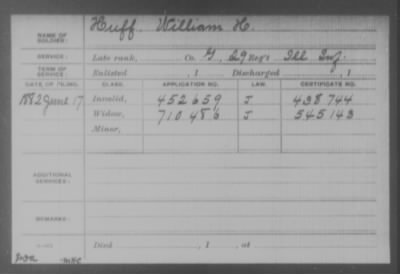 NAME OF SOLDIER: Huff, William H.
SERVICE: Late rank, Co. G, 29 Reg't Ill Inf.
TERM OF SERVICE: Enlisted , 1 Discharged , 1
DATE OF FILING. CLASS. APPLICATION NO. LAW. CERTIFICATE NO.
1882 June 17 Invalid, 452659 J 438744
Widow, 710486 J 545143
Minor,
ADDITIONAL SERVICES:
REMARKS:
Died , 1 , at